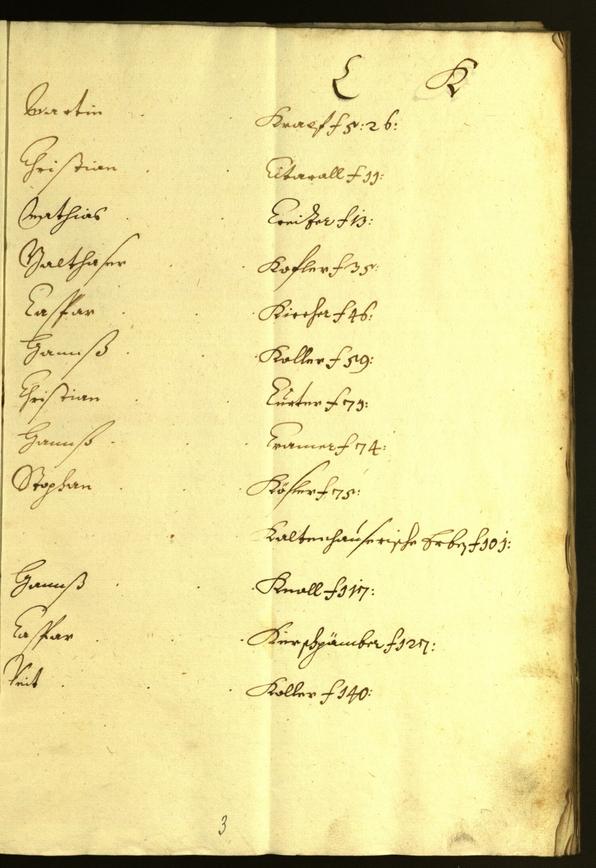 C K
Martin Krapf f 5: 26:
Christian Citarall f 11:
Mathias Creitzer f 13:
Balthaser Kofler f 35:
Caspar Kircher f 46:
Hannß Koller f 59:
Christian Curter f 73:
Hannß Cramer f 74:
Stephan Köfler f 75:
Kaltenhauserische Erben f 101:
Hannß Knoll f 117:
Caspar Kierschpämber f 127:
Veit Koller f 140:
3